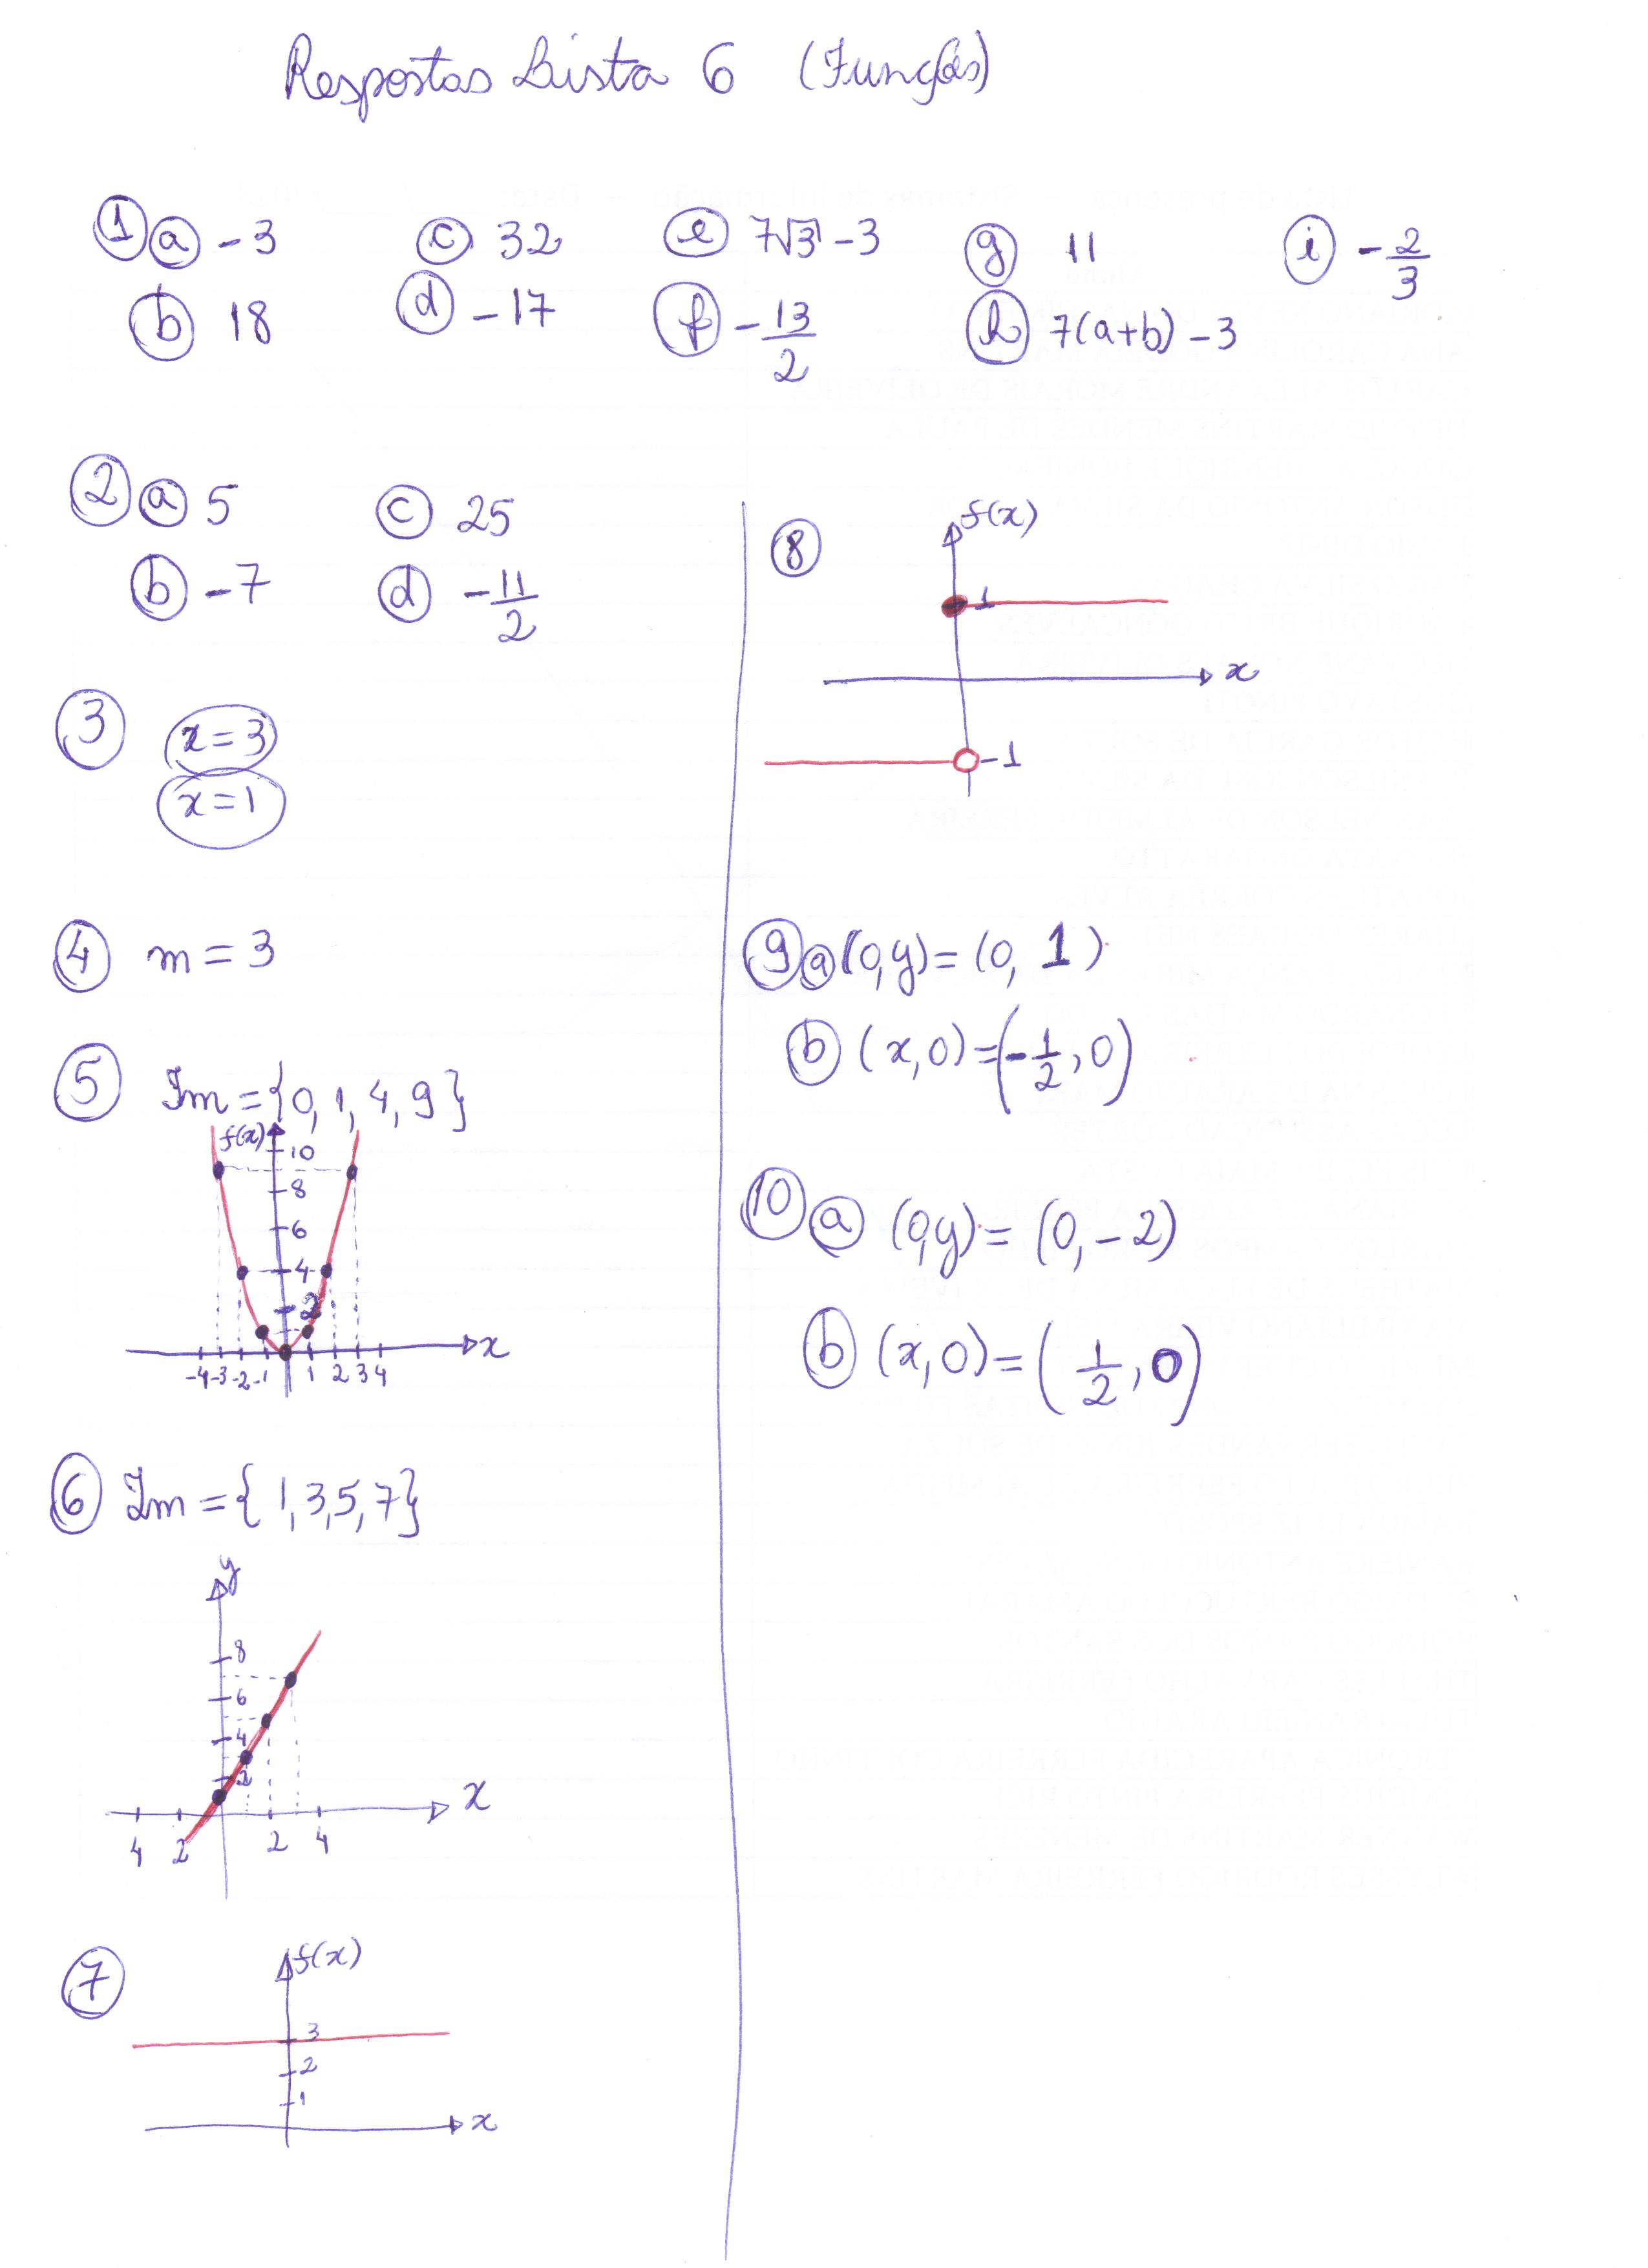 Respostas Lista 6 (Funções)
1 a -3 c 32 e 7√3 -3 g 11 i -2/3
b 18 d -17 f -13/2 h 7(a+b) -3
2 a 5 c 25
b -7 d -11/2
3 x=3
x=1
4 m = 3
5 Im = {0, 1, 4, 9}
f(x)
10
8
6
4
2
x
-4 -3 -2 -1 1 2 3 4
6 Im = { 1, 3, 5, 7}
y
8
6
4
2
x
4 2 2 4
7 f(x)
3
2
1
x
8 f(x)
1
x
-1
9 a (0,y) = (0, 1)
b (x,0) = (-1/2, 0)
10 a (0,y) = (0, -2)
b (x,0) = (1/2, 0)